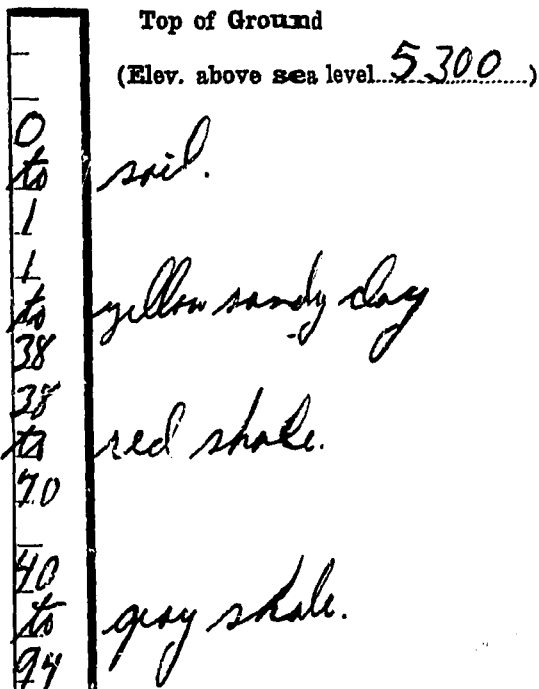 Top of Ground
(Elev. above sea level 5300)
0
to soil.
1
1
to yellow sandy clay
38
38
to red shale.
70
40
to gray shale.
94